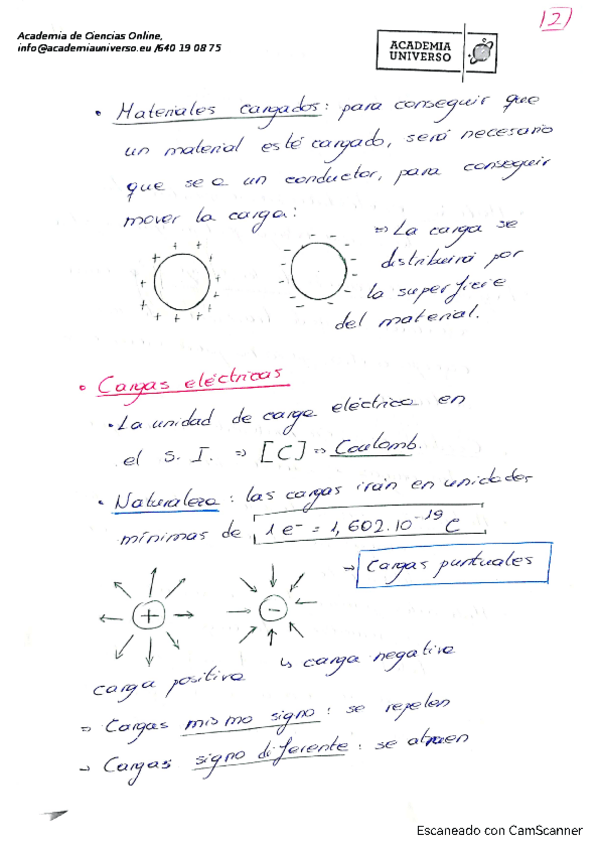 12)
Academia de Ciencias Online,
info@academiauniverso.eu /640 19 08 75
ACADEMIA
UNIVERSO
• Materiales cargados: para conseguir que
un material esté cargado, será necesario
que sea un conductor, para conseguir
mover la carga:
+ + + + + + + + + + + +
- - - - - - - - - - - -
⇒ La carga se
distribuirá por
la superficie
del material.
• Cargas eléctricas
• La unidad de carga eléctrica en
el S. I. ⇒ [C] ⇒ Coulomb.
• Naturaleza: las cargas irán en unidades
mínimas de 1 e⁻ = 1,602.10⁻¹⁹ C
→ Cargas puntuales
+
-
carga positiva
↳ carga negativa
⇒ Cargas mismo signo: se repelen
→ Cargas signo diferente: se atraen
Escaneado con CamScanner